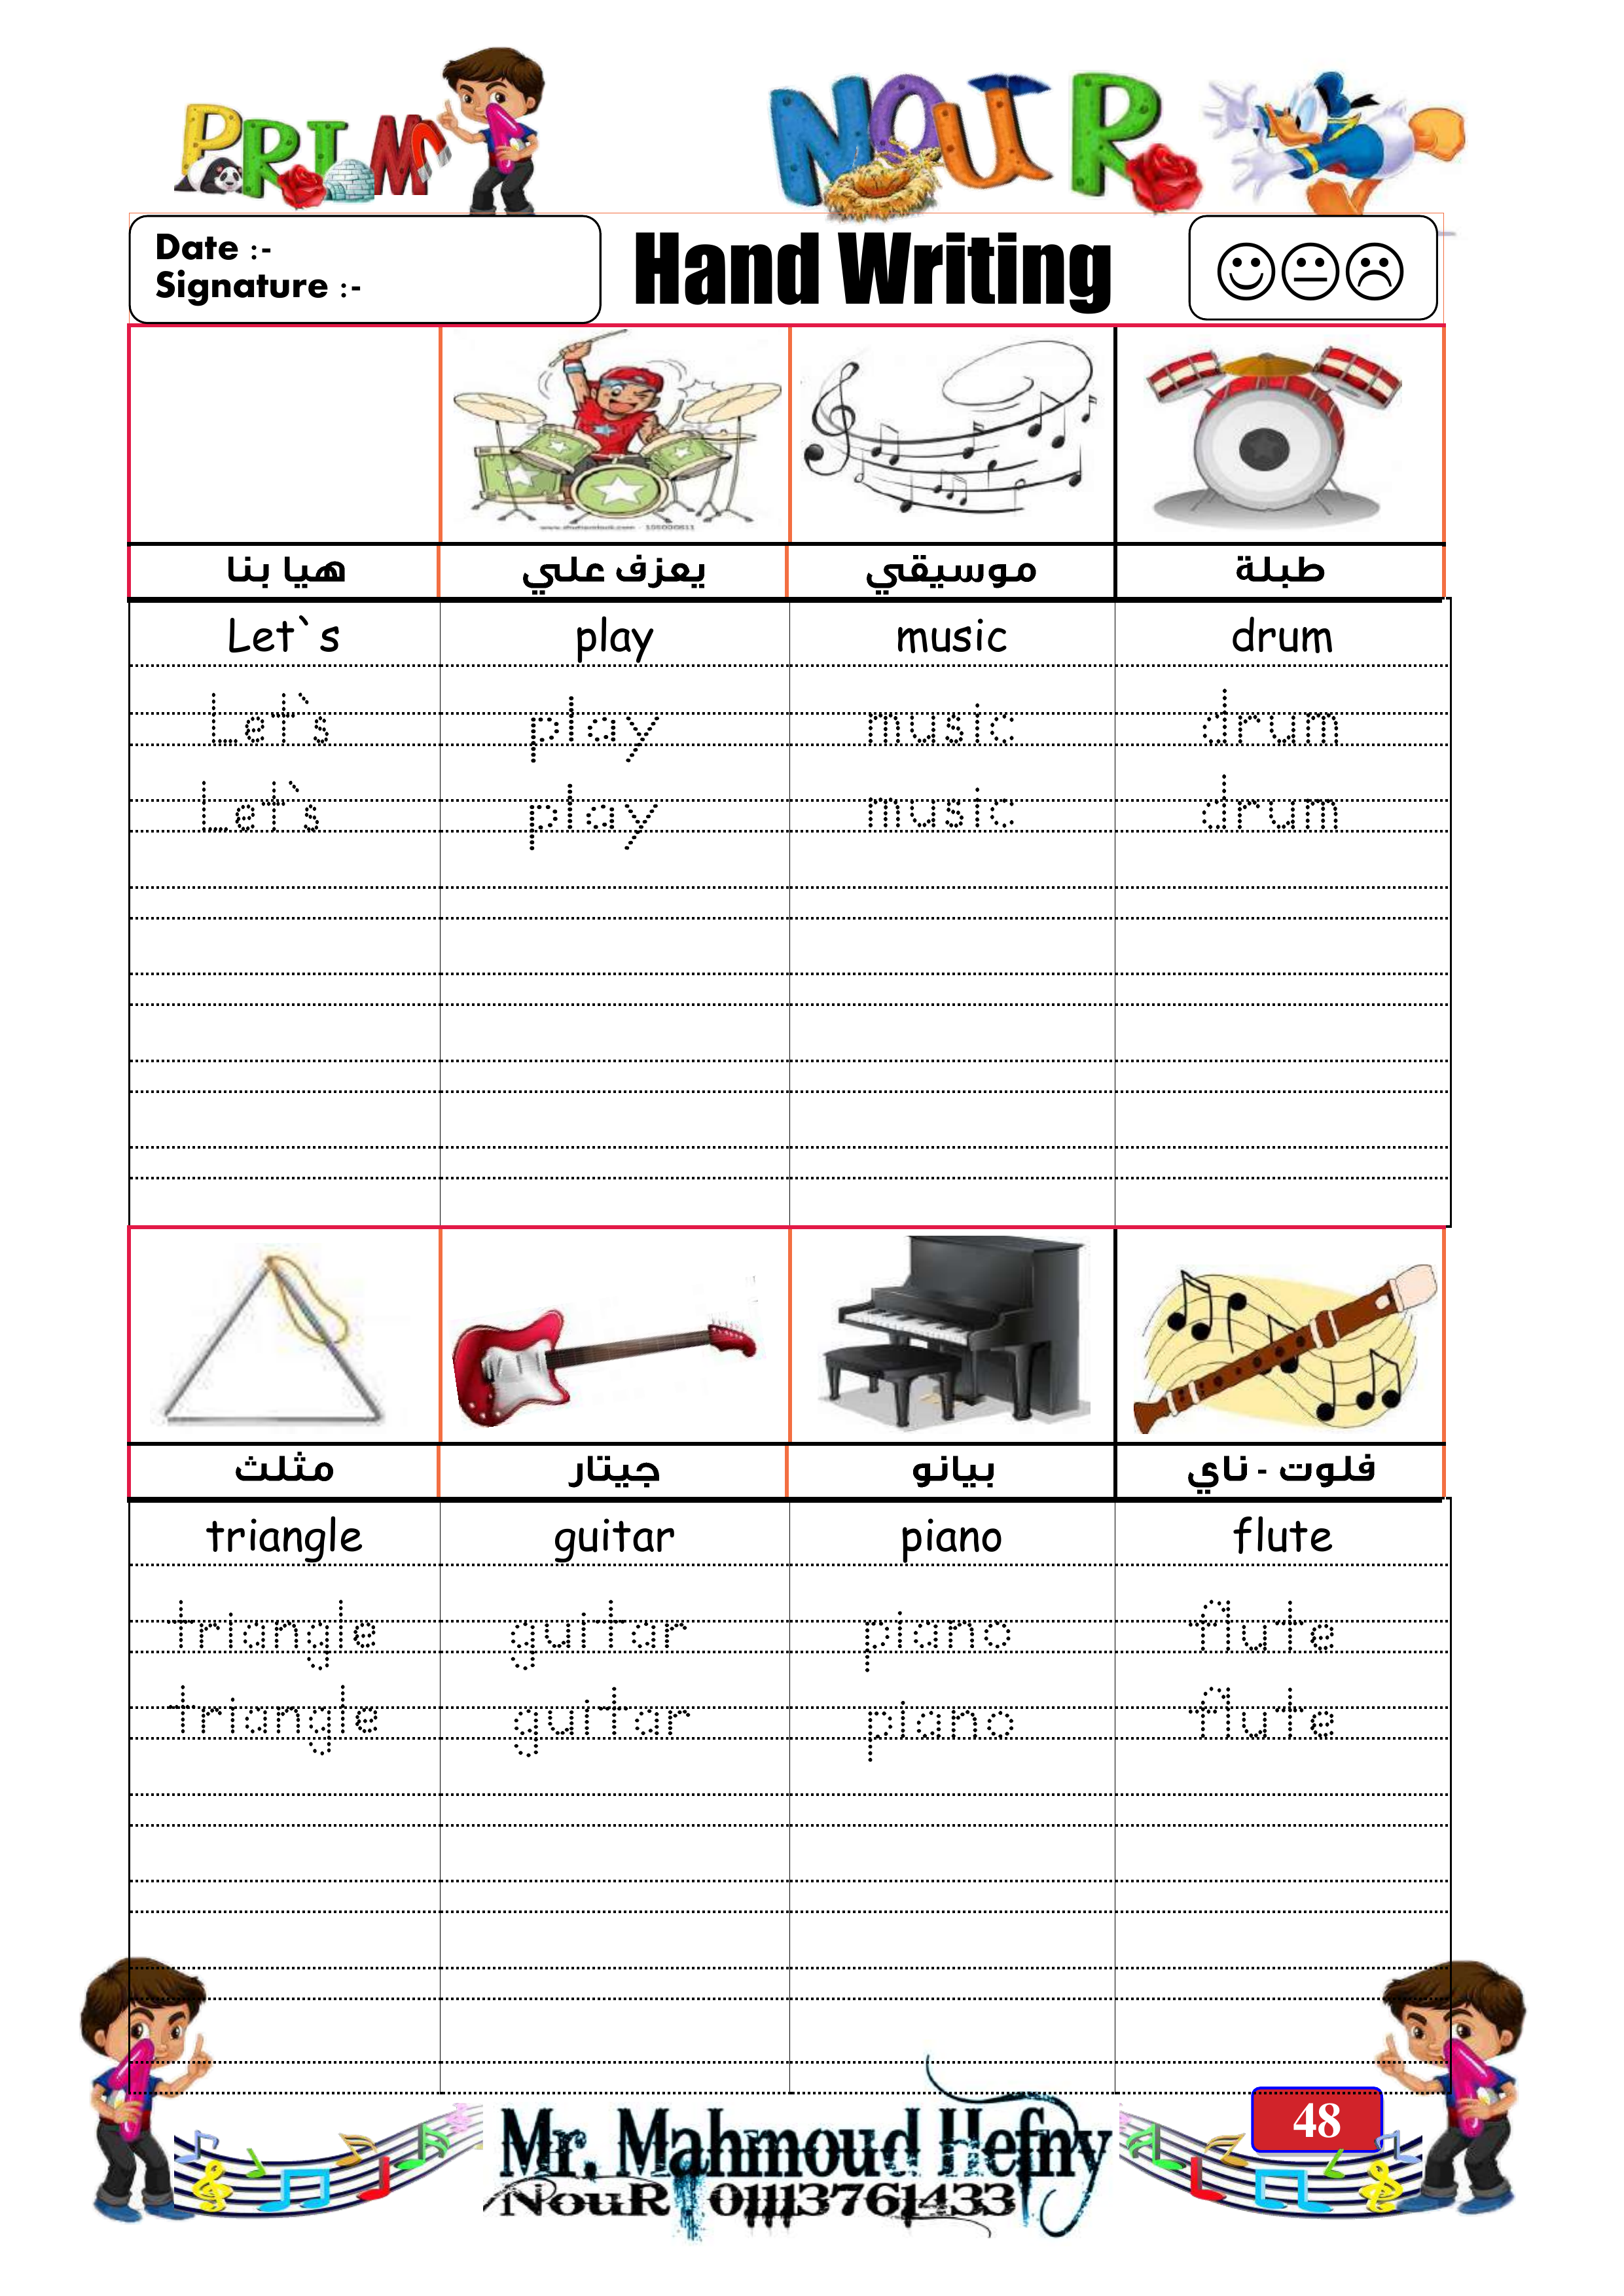 PRIM 1 NOUR
Date :-
Signature :-
Hand Writing
هيا بنا يعزف علي موسيقي طبلة
Let`s play music drum
Let`s play music drum
Let`s play music drum
مثلث جيتار بيانو فلوت - ناي
triangle guitar piano flute
triangle guitar piano flute
triangle guitar piano flute
48
Mr. Mahmoud Hefny
NouR. 01113761433